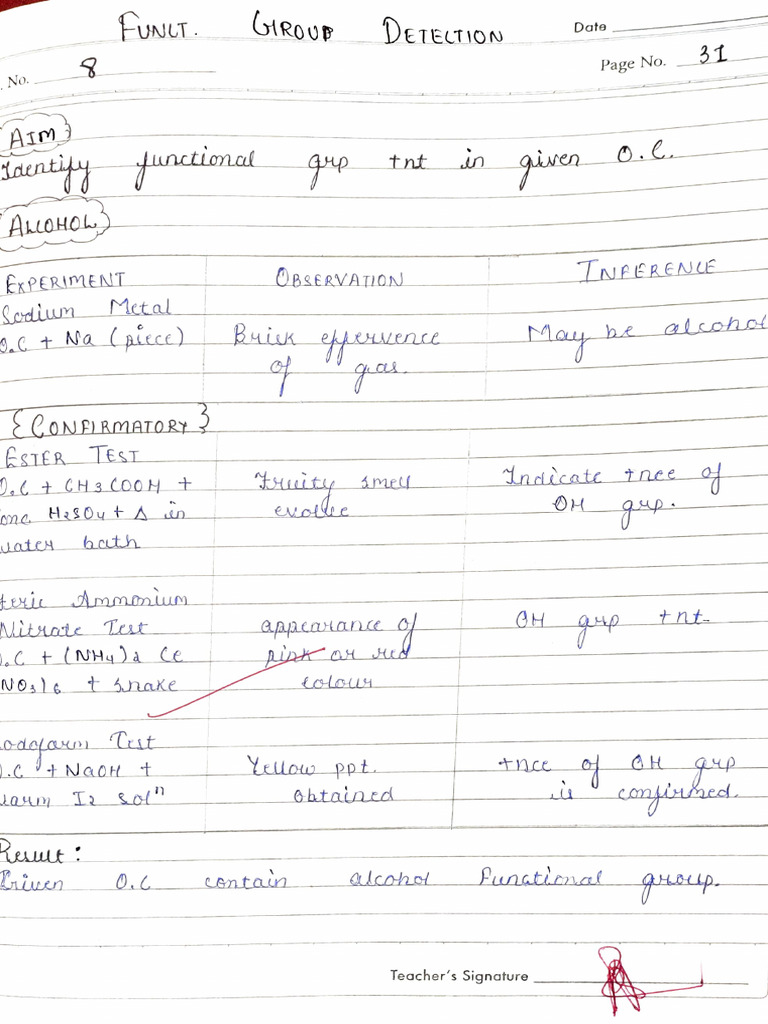 FUNCT. GROUP DETECTION Date
. No. 8 Page No. 31
AIM
Identify functional grp +nt in given O.C.
ALCOHOL
EXPERIMENT OBSERVATION INFERENCE
Sodium Metal
O.C + Na (piece) Brisk effervence May be alcohol
of gas.
{CONFIRMATORY}
ESTER TEST
O.C + CH3COOH + Fruity smell Indicate +nce of
onc H2SO4 + Δ in evolve OH grp.
water bath
eric Ammonium
Nitrate Test appearance of OH grp +nt
O.C + (NH4)2 Ce pink or red
NO3)6 + snake colour
odofarm Test
O.C + NaOH + Yellow ppt. +nce of OH grp
warm I2 solⁿ obtained is confirmed.
Result:
Given O.C contain alcohol functional group.
Teacher's Signature